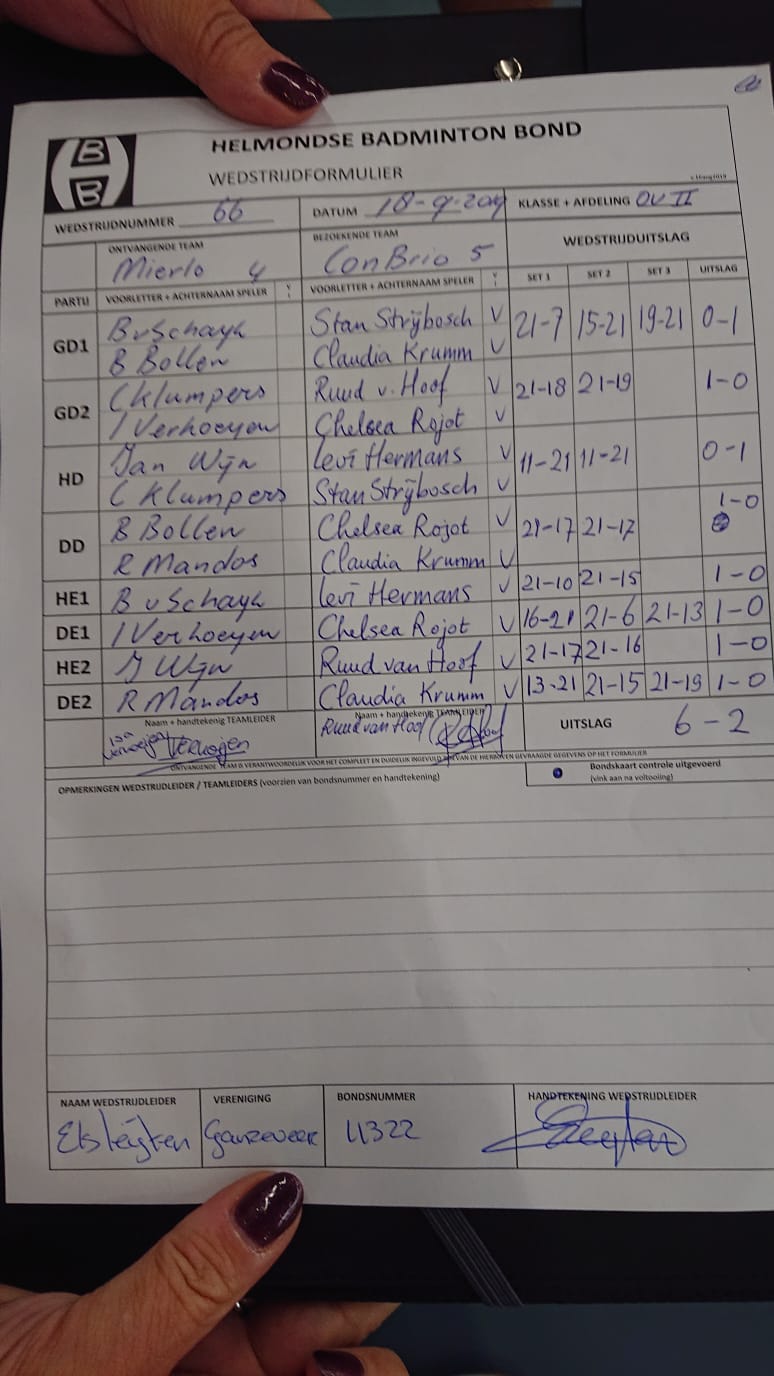 HELMONDSE BADMINTON BOND
WEDSTRIJDFORMULIER
WEDSTRIJDNUMMER 66 DATUM 18-9-2019 KLASSE + AFDELING OV II
ONTVANGENDE TEAM BEZOEKENDE TEAM WEDSTRIJDUITSLAG
Mierlo 4 Con Brio 5
PARTIJ VOORLETTER + ACHTERNAAM SPELER VOORLETTER + ACHTERNAAM SPELER SET 1 SET 2 SET 3 UITSLAG
GD1 B v Schayk Stan Strijbosch V 21-7 15-21 19-21 0-1
B Bollen Claudia Krumm V
GD2 C Klumpers Ruud v. Hoof V 21-18 21-19 1-0
I Verhoeyen Chelsea Rojot V
HD Jan Wijn Levi Hermans V 11-21 11-21 0-1
C Klumpers Stan Strijbosch V
DD B Bollen Chelsea Rojot V 21-17 21-17 1-0
R Mandos Claudia Krumm V
HE1 B v Schayk Levi Hermans V 21-10 21-15 1-0
DE1 I Verhoeyen Chelsea Rojot V 16-21 21-6 21-13 1-0
HE2 J Wijn Ruud van Hoof V 21-17 21-16 1-0
DE2 R Mandos Claudia Krumm V 13-21 21-15 21-19 1-0
Naam + handtekenig TEAMLEIDER Naam + handtekenig TEAMLEIDER UITSLAG 6-2
Ruud van Hoof
ONTVANGENDE TEAM IS VERANTWOORDELIJK VOOR HET COMPLEET EN DUIDELIJK INGEVULD VAN DE HIERBOVEN GEVRAAGDE GEGEVENS OP HET FORMULIER
OPMERKINGEN WEDSTRIJDLEIDER / TEAMLEIDERS (voorzien van bondsnummer en handtekening) Bondskaart controle uitgevoerd
(vink aan na voltooiing)
NAAM WEDSTRIJDLEIDER VERENIGING BONDSNUMMER HANDTEKENING WEDSTRIJDLEIDER
Els Leijten Ganzeveer 11322